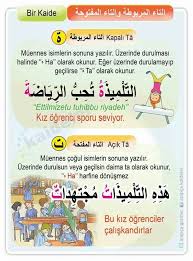 Bir Kaide
التاء المربوطة والتاء المفتوحة
ة
التاء المربوطة Kapalı Tâ
Müennes isimlerin sonuna yazılır. Üzerinde durulması
halinde "- Ha" olarak okunur. Eğer üzerinde durulamayıp
geçilirse "- Ta" olarak okunur.
التِّلْمِيذَةُ تُحِبُّ الرِّيَاضَةَ
"Ettilmizetu tuhibbu riyadeh"
Kız öğrenci sporu seviyor.
ت
التاء المفتوحة Açık Tâ
Müennes çoğul isimlerin sonuna yazılır. Üzerinde
durulsun veya geçilsin daima ta olarak okunur,
"- Ha" harfine dönüşmez
هَذِهِ التِّلْمِيذَاتُ مُجْتَهِدَاتٌ
Bu kız öğrenciler
çalışkandırlar